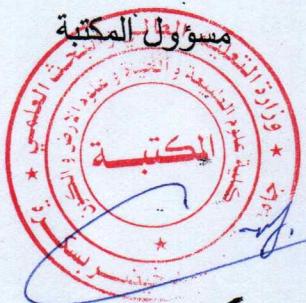 مسؤول المكتبة
وزارة التعليم العالي و البحث العلمي
كلية علوم الطبيعة و الحياة و علوم الأرض و الكون
المكتبـــة